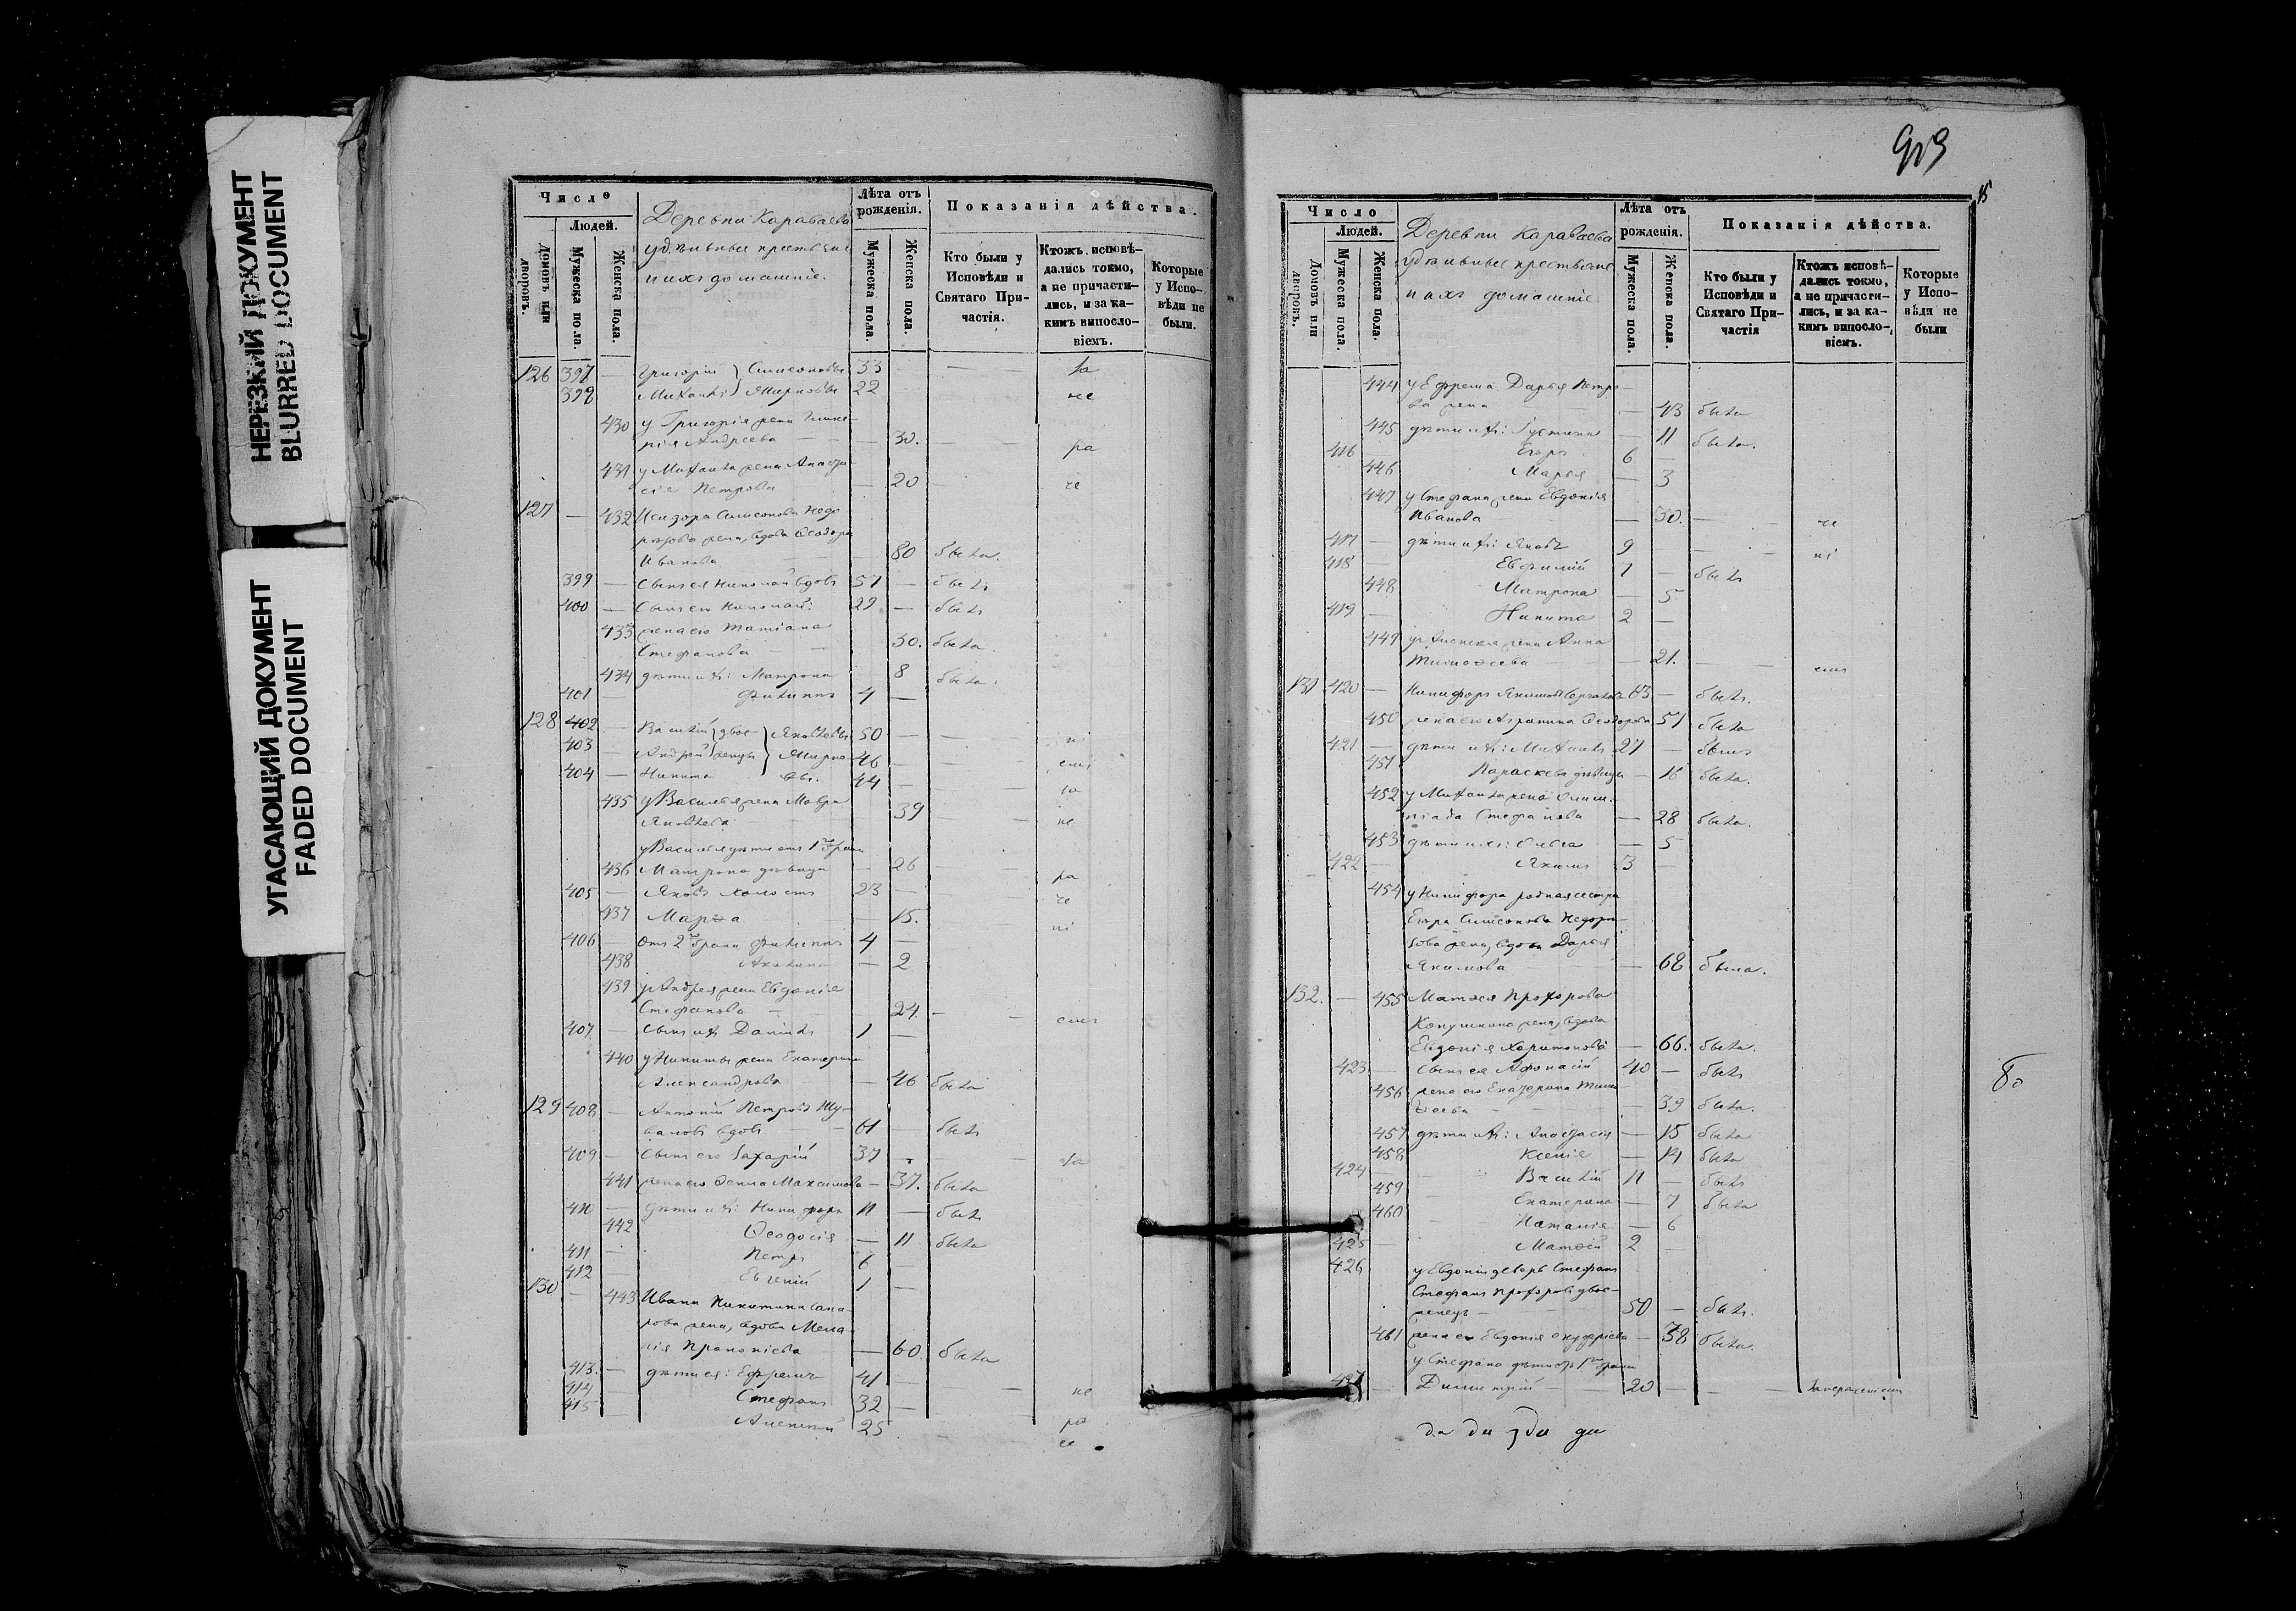 НЕРЕЗКИЙ ДОКУМЕНТ
BLURRED DOCUMENT
УГАСАЮЩИЙ ДОКУМЕНТ
FADED DOCUMENT
Число
Людей.
Домовъ или дворовъ.
Мужеска пола.
Женска пола.
Деревни Караваева
удѣльные крестьяне
и ихъ домашніе.
Лѣта отъ рожденія.
Мужеска пола.
Женска пола.
Показанія дѣйства.
Кто были у Исповѣди и Святаго Причастія.
Ктожъ исповѣдались токмо, а не причастились, и за какимъ винословіемъ.
Которые у Исповѣди не были.
126 397 — Григорій Симеоновы 33 — за
398 Михаилъ 22 не
430 у Григорія жена
Андреева — 30. ра
431 у Михаила жена Анаста-
сія Петрова — 20 че
127 — 432 Исидора Симеонова
жена, вдова Ѳеодора
Иванова 80 была
399 — Сынъ ея Николай вдовъ 51 — былъ
400 — Сынъ его Николай: 29 — былъ
433 жена его Татіана
Стефанова 30. была
434 дѣти ихъ: Матрона 8 была.
401 — Филиппъ 4 —
128 402 — Василій двое- Яковлевы 50 — ні
403 — Андрей женцы 46 — емъ
404 — Никита 44 — за
435 у Василья жена Мавра
Яковлева 39 не
у Василья дѣти отъ 1го брака
436 Матрона дѣвица — 26 ра
405 — Яковъ холостъ 23 — че
437 Марѳа — 15. ні
406 — отъ 2го брака Филиппъ 4 —
438 Акилина — 2
439 у Андрея жена Евдокія
Стефанова 24. емъ
407 — сынъ ихъ Даніилъ 1 —
440 у Никиты жена Екатерина
Александрова — 46 была
129 408 — Антоній Петровъ
вдовъ 61 — былъ
409 — сынъ его Захарій 37 за
441 жена его Максимова — 37. была
410 — дѣти ихъ: Никифоръ 11 — былъ
442 Ѳеодосія — 11 была
411 — Петръ 6 —
412 — Евгеній 1 —
130 — 443 Ивана Никитина
жена, вдова Мела-
нія Прокопіева — 60. была
413. — дѣти ея: Ефремъ 41 — не
414 — Стефанъ 32 — ра
415 — Алексій 25 че
Число
Людей.
Домовъ или дворовъ.
Мужеска пола.
Женска пола.
Деревни Караваева
удѣльные крестьяне
и ихъ домашніе
Лѣта отъ рожденія.
Мужеска пола.
Женска пола.
Показанія дѣйства.
Кто были у Исповѣди и Святаго Причастія
Ктожъ исповѣдались токмо, а не причастились, и за какимъ винословіемъ.
Которые у Исповѣди не были
15
444 у Ефрема Дарья Петро-
ва жена — 43 была
445 дѣти ихъ: Іустина — 11 была.
416 Егоръ 6 —
446 Марья — 3
447 у Стефана жена Евдокія
Иванова — 30. — че
417 — дѣти ихъ: Яковъ 9 ні
418 — Евфимій 7 — былъ
448 Матрона — 5
419 — Никита 2 —
449 у Алексія жена Анна
Тимоѳеева — 21. емъ
131 420 — Никифоръ 63 — былъ.
450 жена его Агрипина Ѳеодорова 57 была
421 — дѣти ихъ: Михаилъ 27 — былъ
451 Параскева дѣвица — 16 была.
452 у Михаила жена Олим-
піада Стефанова — 28 была.
453 дѣти ихъ: Ольга — 5
422 — Якимъ 3 —
454 у Никифора родная сестра
Егора Симеонова
жена, вдова Дарья
Якимова — 68 была.
132. — 455 Матѳея Прохорова
жена, вдова
Евдокія Харитонова — 66. была.
423 — сынъ ея Аѳонасій 40 — былъ
456 жена его Екатерина Тимо-
ѳеева 39 была.
457 дѣти ихъ: Анастасія — 15 была
458 Ксенія — 14 была
424 — Василій 11 — былъ
459 Екатерина — 7 была
460 Наталія — 6
425 — Матѳей 2
426 у Евдокіи деверь Стефанъ
Стефанъ Прохоровъ двое-
женецъ 50 — былъ.
461 жена его Евдокія — 38 была.
у Стефана дѣти отъ 1го брака
427 — Димитрій 20 —
80